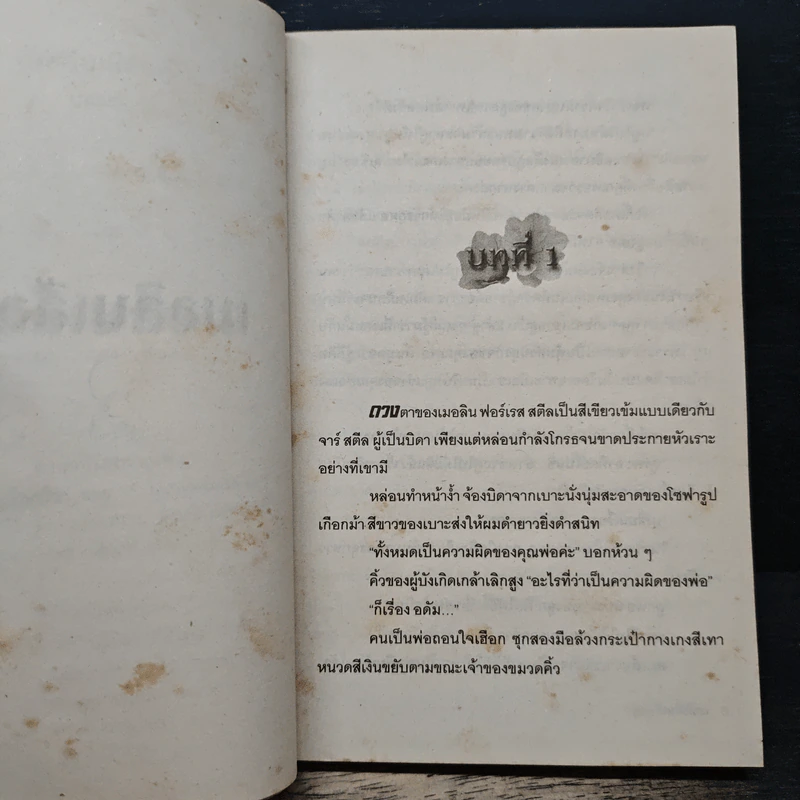 บทที่ 1
ดวงตาของเมอลิน ฟอร์เรส สตีลเป็นสีเขียวเข้มแบบเดียวกับ
จาร์ สตีล ผู้เป็นบิดา เพียงแต่หล่อนกำลังโกรธจนขาดประกายหัวเราะ
อย่างที่เขามี
หล่อนทำหน้าง้ำ จ้องบิดาจากเบาะนั่งนุ่มสะอาดของโซฟารูป
เกือกม้า สีขาวของเบาะส่งให้ผมดำยาวยิ่งดำสนิท
“ทั้งหมดเป็นความผิดของคุณพ่อค่ะ” บอกห้วน ๆ
คิ้วของผู้บังเกิดเกล้าเลิกสูง “อะไรที่ว่าเป็นความผิดของพ่อ”
“ก็เรื่อง อดัม...”
คนเป็นพ่อถอนใจเฮือก ซุกสองมือล้วงกระเป๋ากางเกงสีเทา
หนวดสีเงินขยับตามขณะเจ้าของขมวดคิ้ว